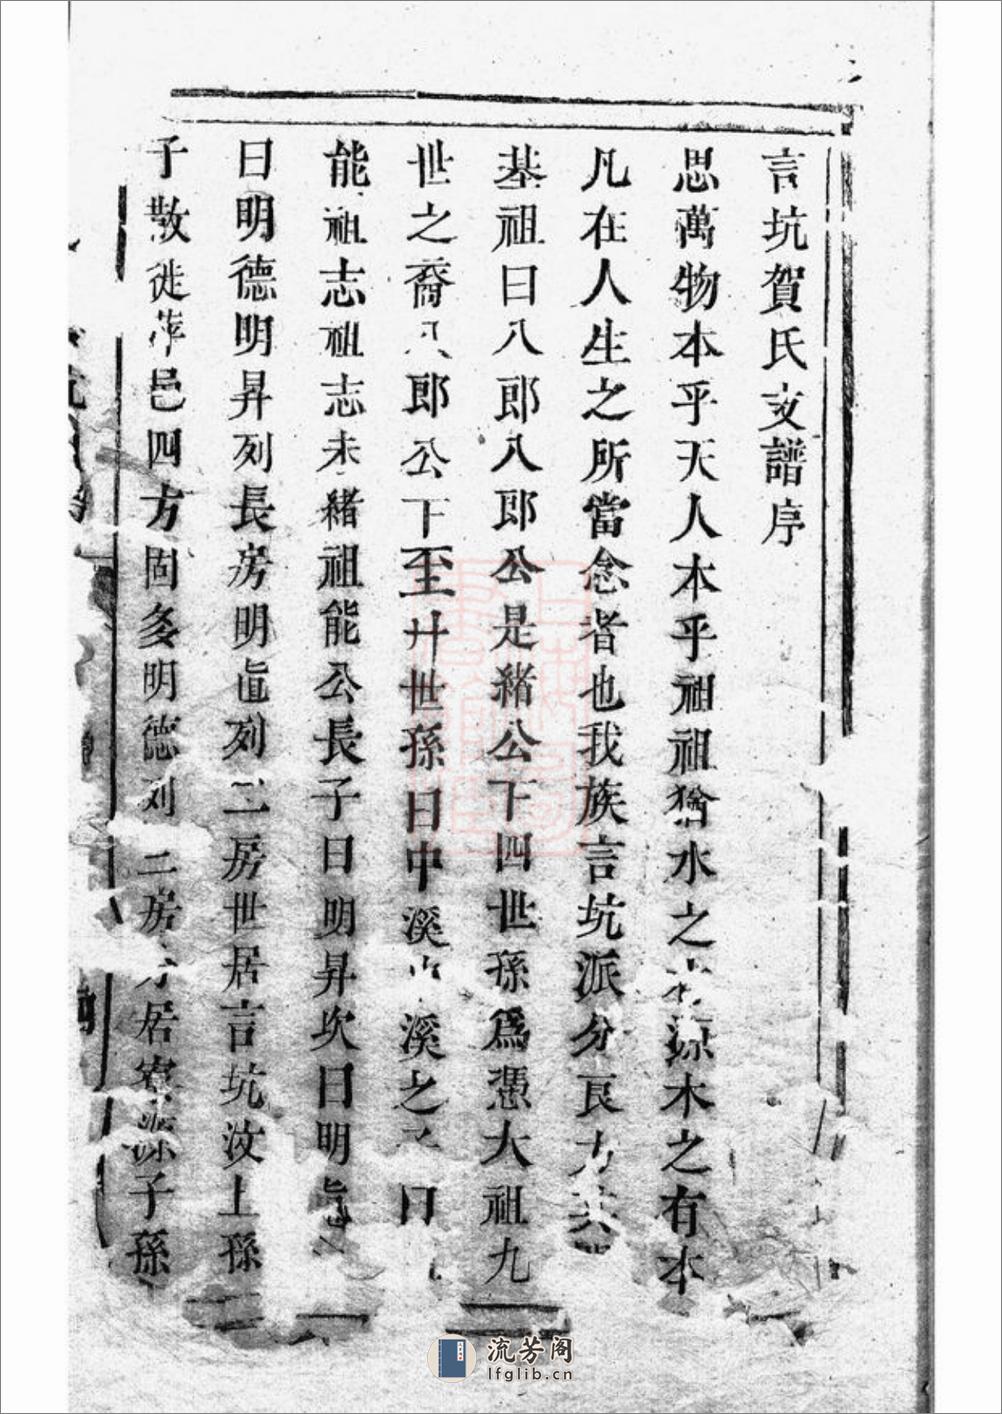 言坑賀氏支譜序
思萬物本乎天人本乎祖祖猶水之有源木之有本
凡在人生之所當念者也我族言坑派分良方其
基祖曰八郎八郎公是緒公下四世孫爲憑大祖九
世之裔八郎公下至廿世孫曰中溪中溪之子曰
能祖志祖志未緒祖能公長子曰明昇次曰明眞
曰明德明昇列長房明眞列三房世居言坑汶上孫
子散徙萍邑四方固多明德列二房分居寮源子孫
流芳阁
lfglib.cn